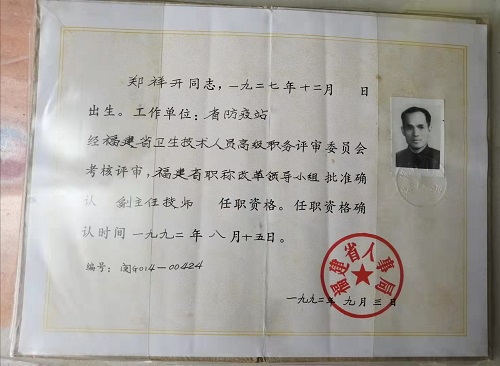 郑祥开同志，一九二七年十二月 日
出生。工作单位：省防疫站
经福建省卫生技术人员高级职务评审委员会
考核评审，福建省职称改革领导小组批准确
认 副主任技师 任职资格。任职资格确
认时间一九九二年八月十五日。
编号：闽G014-00424
福建省人事局
一九九二年九月三日